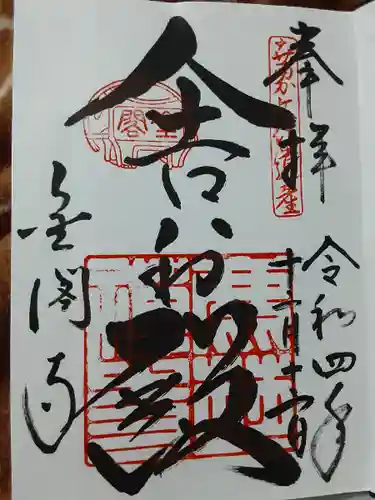 奉拝
令和四年
十一月十一日
舎利殿
金閣
金閣寺